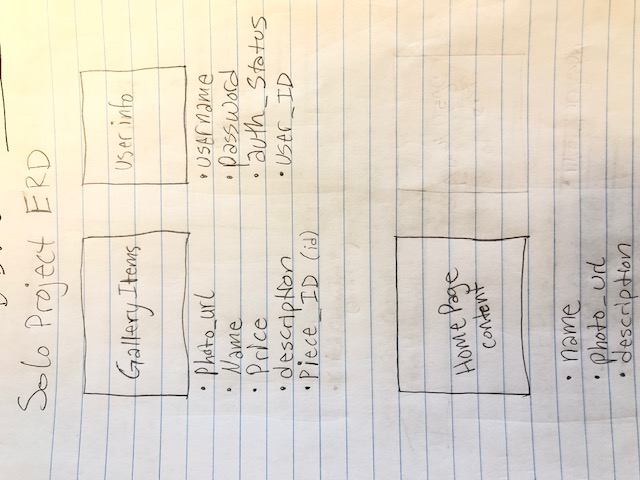 Solo Project ERD
Gallery Items
user info
• Photo_url
• Name
• Price
• description
• Piece_ID (id)
• username
• password
• auth_Status
• user_ID
Home Page
content
• name
• photo_url
• description